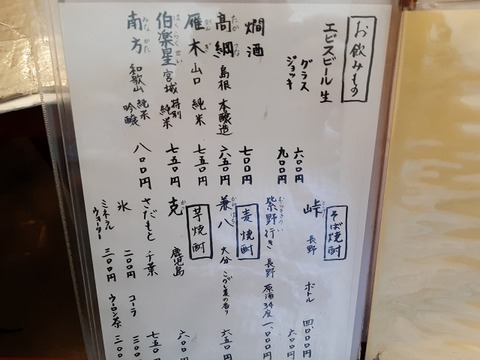 お飲みもの
エビスビール 生
グラス 六〇〇円
ジョッキ 九〇〇円
燗酒 七〇〇円
髙綱 島根 本醸造 六五〇円
雁木 山口 純米 七五〇円
伯楽星 宮城 特別純米 七五〇円
南方 和歌山 純米吟醸 八〇〇円
そば焼酎
峠 長野 ボトル 四〇〇〇円
六〇〇円
紫野行き 長野 原酒34度 一〇〇〇円
麦焼酎
兼八 大分 こがし麦の香り 六五〇円
芋焼酎
克 鹿児島 六〇〇円
さだもと 千葉 七五〇円
氷 二〇〇円 コーラ 三〇〇
ミネラルウォーター 三〇〇円 ウーロン茶 三〇〇